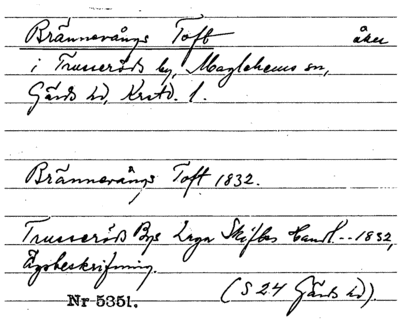 Brännevångs Toft åker
i Trusseröds by, Maglehems sn,
Gärds hd, Krstd. l.
Brännevångs Toft 1832.
Trusseröds Bys Laga Skiftes Handl. -- 1832,
Ägobeskrifning.
(S 24 Gärds hd).
Nr 5351.